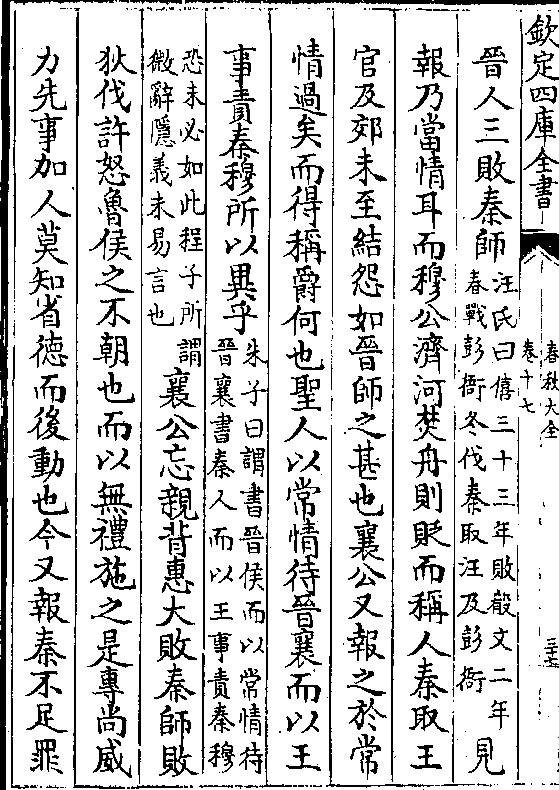 欽定四庫全書
春秋大全
卷十七
三十五
晉人三敗秦師汪氏曰僖三十三年敗殽文二年
春戰彭衙冬伐秦取汪及彭衙見
報乃當情耳而穆公濟河焚舟則貶而稱人秦取王
官及郊未至結怨如晉師之甚也襄公又報之於常
情過矣而得稱爵何也聖人以常情待晉襄而以王
事責秦穆所以異乎朱子曰謂書晉侯而以常情待
晉襄書秦人而以王事責秦穆
恐未必如此程子所謂
微辭隱義未易言也襄公忘親背惠大敗秦師敗
狄伐許怒魯侯之不朝也而以無禮施之是專尚威
力先事加人莫知省德而後動也今又報秦不足罪